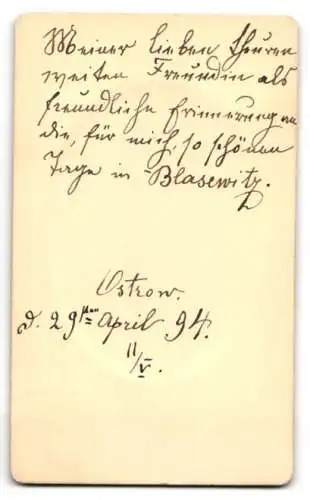 Meiner lieben theuren
weiten Freundin als
freundliche Erinnerung an
die, für mich, so schönen
Tage in Blasewitz.
Ostrow.
d. 29sten April 94.
11/V.